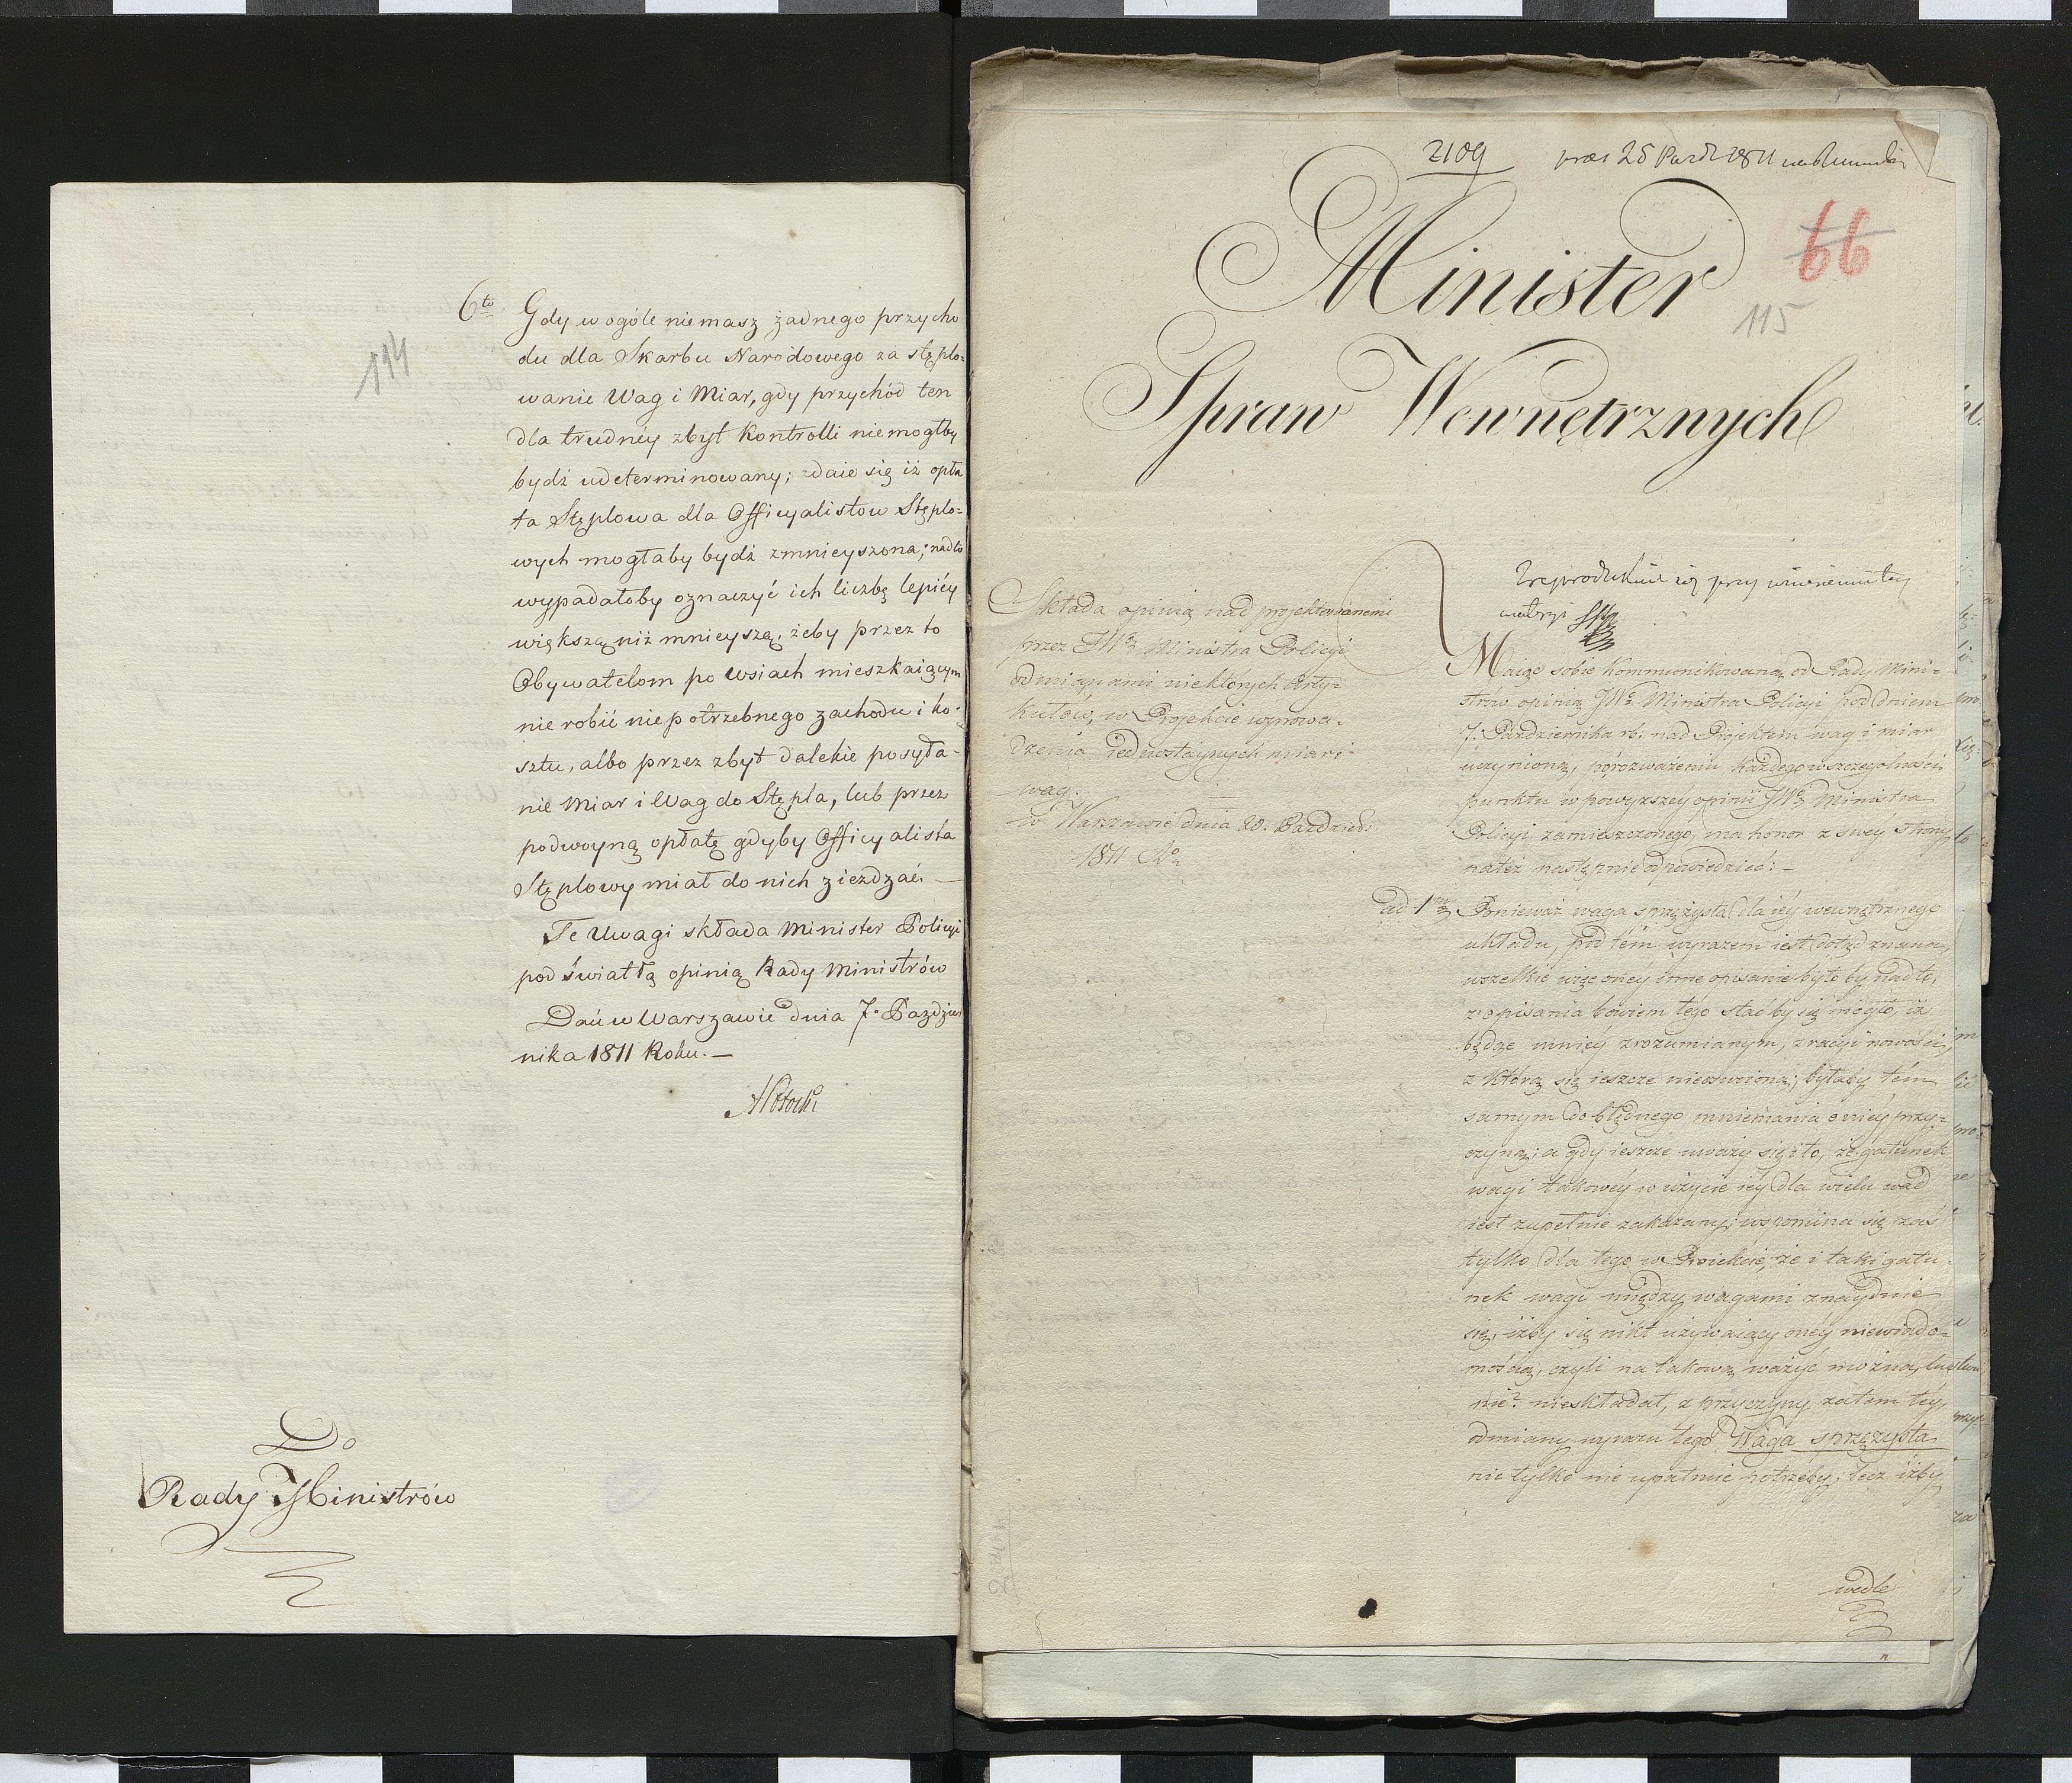 114
6to Gdy w ogóle niemasz żadnego przycho
du dla Skarbu Narodowego za stęplo=
wanie Wag i Miar, gdy przychód ten
dla trudnéy zbyt Kontrolli niemogłby
bydź udeterminowany; zdaie się iż opła
ta Stęplowa dla Officyalistow Stęplo=
wych mogłaby bydź zmnieyszona; nadto
wypadałoby oznaczyć ich liczbę lepiéy
większą niż mnieyszą, żeby przez to
Obywatelom po wsiach mieszkaiącym
nie robić niepotrzebnego zachodu i ko=
sztu, albo przez zbyt dalekie posyła=
nie Miar i Wag do Stępla, lub przez
podwoyną opłatę gdyby Officyalista
Stęplowy miał do nich ziezdzać. —
Te Uwagi składa Minister Policyi
pod światłą opinią Rady Ministrów
Dań w Warszawie dnia 7. Pazdzier
nika 1811 Roku. —
APotocki
Do
Rady Ministrów
2109
66
115
Minister
Spraw Wewnętrznych
Składa opinią nad projektowanemi
przez JWo Ministra Policyi
odmianami niektórych Arty=
kułów, w Projekcie wprowa=
dzenia iednostaynych miar i
wag.
w Warszawie dnia 20. Pazdzier.
1811 Ro
Maiąc sobie kommunikowaną od Rady Mini=
strów opinią JWo Ministra Policyi pod dniem
7. Pazdziernika rb. nad Projektem wag i miar
uczynioną, po rozważeniu każdego w szczegolności
punktu w powyższéy opinii JWo Ministra
Policyi zamieszczonego, ma honor z swéy strony
nateż następnie odpowiedzieć: —
ad 1m Ponieważ waga sprzężysta dla iéy wewnętrznego
układu, pod tém wyrazem iest dotąd znana,
wszelkie więc onéy inne opisanie było by nadto,
z opisania bowiem tego stać by się mogło, iż
będąc mniéy zrozumianym, z racyi nowości
z którą się ieszcze nieoswoiono, byłaby tém
samym do błędnego mniemania o niéy przy=
czyną; a gdy ieszcze uważy się i to, że gatunek
wagi takowéy w użycie iéy dla wielu wad
iest zupełnie zakazany; wspomina się zaś
tylko dla tego w Proiekcie, że i taki gatu=
nek wagi między wagami znayduie
się, iżby się nikt używaiący onéy niewiado=
mością, czyli na takową ważyć można, lub
nie? nieskładał, z przyczyny zatem téy,
odmiany wyrazu tego Waga sprzężysta
nie tylko nie upatruie potrzeby; lecz iżby
wedle